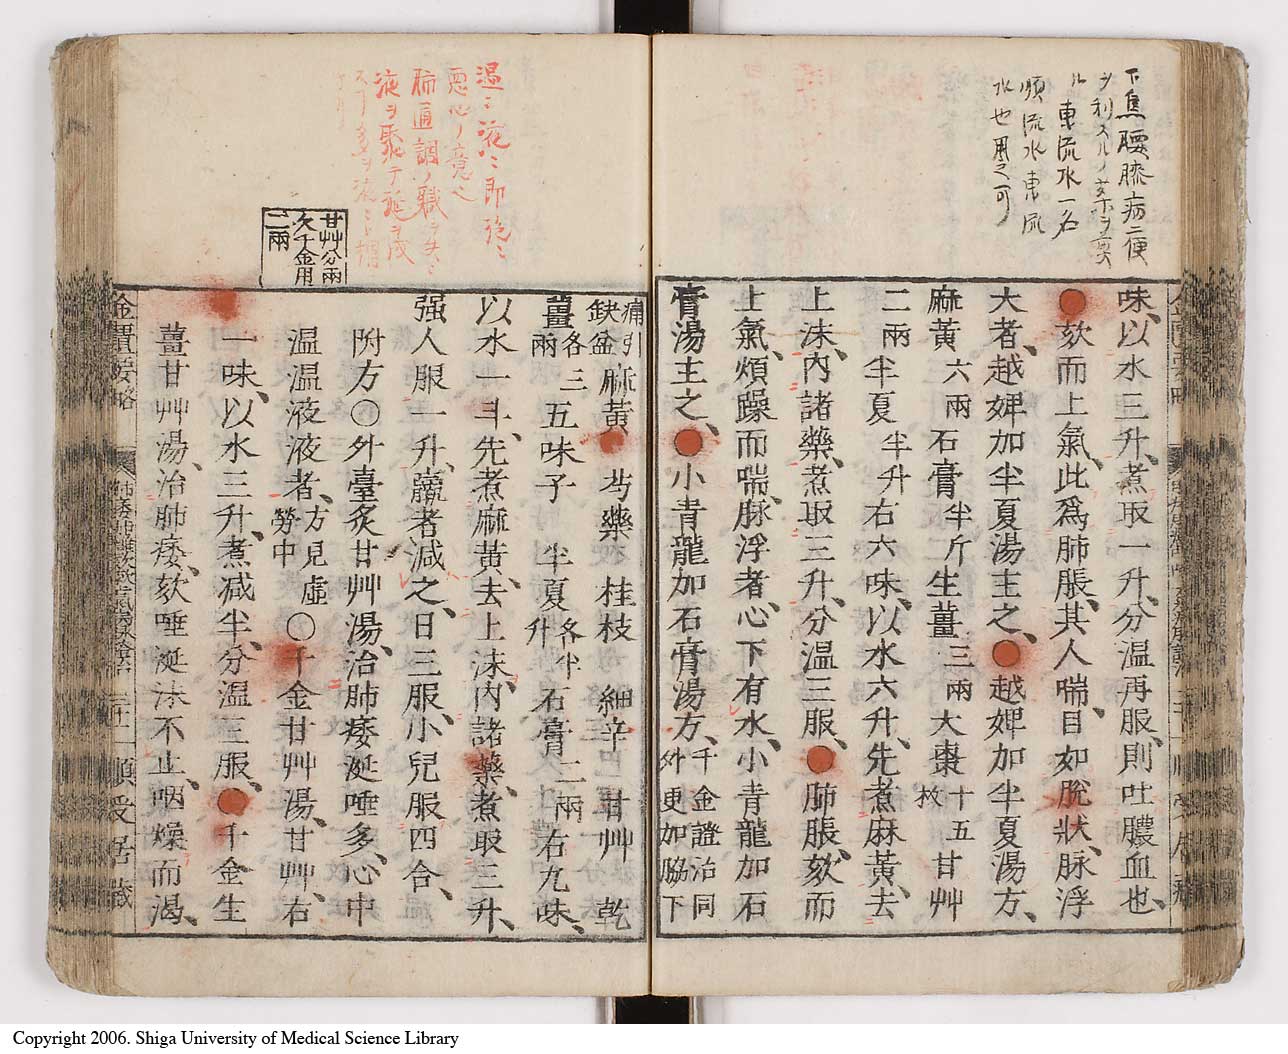 下焦腰膝病二便
東流水一名
順流水東流
水也用之可
味、以水三升、煮取一升、分温再服、則吐膿血也、
●欬而上氣、此爲肺脹、其人喘、目如脫狀、脉浮
大者、越婢加半夏湯主之、●越婢加半夏湯方、
麻黃六兩石膏半斤生薑三兩大棗十五枚甘艸
二兩半夏半升右六味、以水六升、先煮麻黃、去
上沫、內諸藥、煮取三升、分温三服、●肺脹、欬而
上氣、煩躁而喘、脉浮者、心下有水、小青龍加石
膏湯主之、●小青龍加石膏湯方、千金證治同外更加脇下
痛引缺盆麻黃芍藥桂枝細辛甘艸乾
薑各三兩五味子半夏各半升石膏二兩右九味、
以水一斗、先煮麻黃、去上沫、內諸藥、煮取三升、
强人服一升、羸者減之、日三服、小兒服四合、
附方○外臺炙甘艸湯、治肺痿涎唾多、心中
温温液液者、方見虛勞中○千金甘艸湯、甘艸、右
一味、以水三升、煮减半、分温三服、●千金生
薑甘艸湯、治肺痿、欬唾涎沫不止、咽燥而渴、
甘艸分兩
欠千金用
二兩
金匱要略
順受居藏
Copyright 2006. Shiga University of Medical Science Library